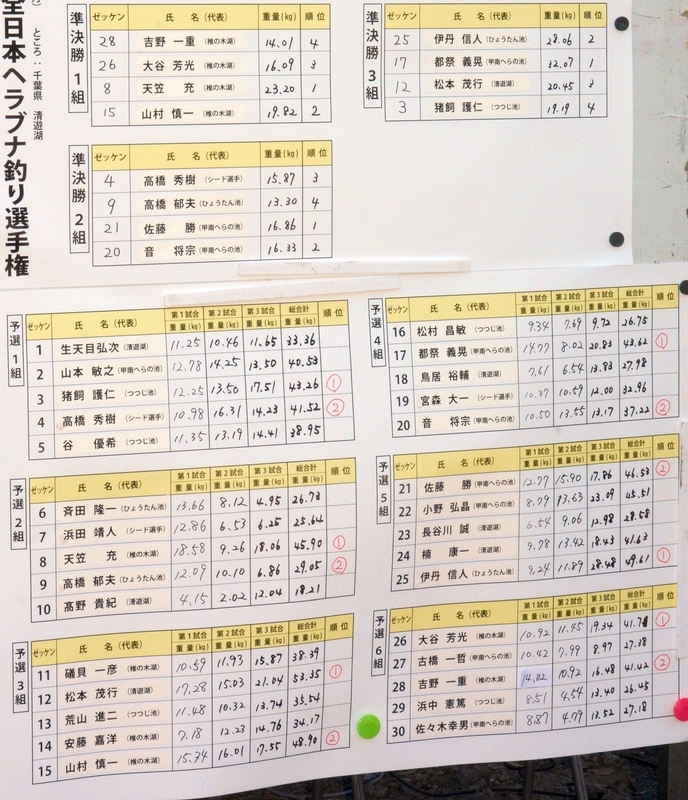 全日本ヘラブナ釣り選手権
ところ：千葉県 清遊湖
準決勝1組
ゼッケン 氏 名（代表） 重量(kg) 順 位
28 吉野 一重（椎の木湖） 14.01 4
26 大谷 芳光（椎の木湖） 16.09 3
8 天笠 充（椎の木湖） 23.20 1
15 山村 慎一（椎の木湖） 19.82 2
準決勝3組
ゼッケン 氏 名（代表） 重量(kg) 順 位
25 伊丹 信人（ひょうたん池） 28.06 2
17 都祭 義晃（甲南へらの池） 32.07 1
12 松本 茂行（清遊湖） 20.45 3
3 猪飼 護仁（つつじ池） 19.19 4
準決勝2組
ゼッケン 氏 名（代表） 重量(kg) 順 位
4 高橋 秀樹（シード選手） 15.87 3
9 高橋 郁夫（ひょうたん池） 13.30 4
21 佐藤 勝（甲南へらの池） 16.86 1
20 音 将宗（甲南へらの池） 16.33 2
予選1組
ゼッケン 氏 名（代表） 第1試合 重量(kg) 第2試合 重量(kg) 第3試合 重量(kg) 総合計 重量(kg) 順 位
1 生天目弘次（清遊湖） 11.25 10.46 11.65 33.36
2 山本 敏之（甲南へらの池） 12.78 14.25 13.50 40.53
3 猪飼 護仁（つつじ池） 12.25 13.50 17.51 43.26 ①
4 高橋 秀樹（シード選手） 10.98 16.31 14.23 41.52 ②
5 谷 優希（つつじ池） 11.35 13.19 14.41 38.95
予選2組
ゼッケン 氏 名（代表） 第1試合 重量(kg) 第2試合 重量(kg) 第3試合 重量(kg) 総合計 重量(kg) 順 位
6 斉田 隆一（ひょうたん池） 13.66 8.12 4.95 26.73
7 浜田 靖人（シード選手） 12.86 6.53 6.25 25.64
8 天笠 充（椎の木湖） 18.58 9.26 18.06 45.90 ①
9 高橋 郁夫（ひょうたん池） 12.09 10.10 6.86 29.05 ②
10 髙野 貴紀（清遊湖） 4.15 2.02 12.04 18.21
予選3組
ゼッケン 氏 名（代表） 第1試合 重量(kg) 第2試合 重量(kg) 第3試合 重量(kg) 総合計 重量(kg) 順 位
11 礒貝 一彦（椎の木湖） 10.59 11.93 15.87 38.39
12 松本 茂行（清遊湖） 17.28 15.03 21.04 53.35 ①
13 荒山 進二（つつじ池） 11.48 10.32 13.74 35.54
14 安藤 嘉洋（椎の木湖） 7.18 12.23 14.76 34.17
15 山村 慎一（椎の木湖） 15.34 16.01 17.55 48.90 ②
予選4組
ゼッケン 氏 名（代表） 第1試合 重量(kg) 第2試合 重量(kg) 第3試合 重量(kg) 総合計 重量(kg) 順 位
16 松村 昌敏（つつじ池） 9.34 7.69 9.72 26.75
17 都祭 義晃（甲南へらの池） 14.77 8.02 20.83 43.62 ①
18 鳥居 裕輔（清遊湖） 7.61 6.54 13.83 27.98
19 宮森 大一（シード選手） 10.37 10.59 12.00 32.96
20 音 将宗（甲南へらの池） 10.50 13.55 13.17 37.22 ②
予選5組
ゼッケン 氏 名（代表） 第1試合 重量(kg) 第2試合 重量(kg) 第3試合 重量(kg) 総合計 重量(kg) 順 位
21 佐藤 勝（甲南へらの池） 12.77 15.90 17.86 46.53 ②
22 小野 弘晶（甲南へらの池） 8.79 13.63 23.09 45.51
23 長谷川 誠（清遊湖） 6.54 9.06 12.98 28.58
24 楠 康一（清遊湖） 9.78 13.42 18.43 41.63
25 伊丹 信人（ひょうたん池） 9.24 11.89 28.48 49.61 ①
予選6組
ゼッケン 氏 名（代表） 第1試合 重量(kg) 第2試合 重量(kg) 第3試合 重量(kg) 総合計 重量(kg) 順 位
26 大谷 芳光（椎の木湖） 10.92 11.45 19.34 41.71 ①
27 古橋 一哲（甲南へらの池） 10.42 7.99 8.97 27.38
28 吉野 一重（椎の木湖） 14.02 10.92 16.48 41.42 ②
29 浜中 憲篤（つつじ池） 8.51 4.54 13.40 26.45
30 佐々木幸男（甲南へらの池） 8.87 4.79 13.52 27.18